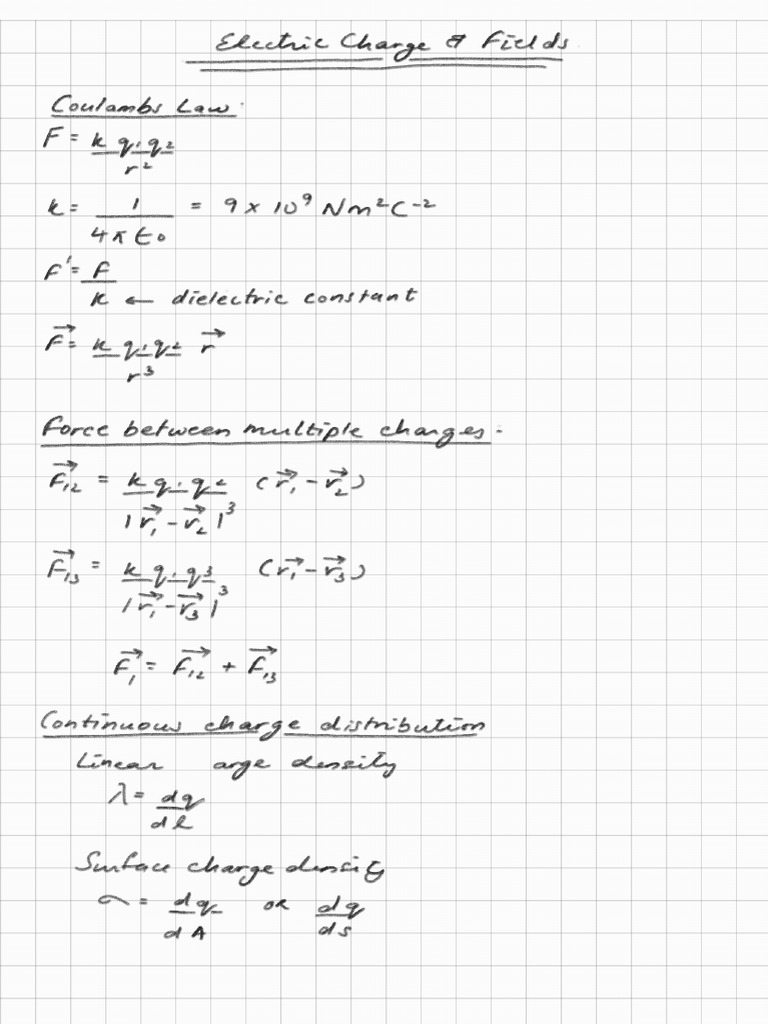 Electric Charge & Fields
Coulambs Law.
F = k q1 q2 / r²
k = 1 / 4πε0 = 9 × 10⁹ Nm²C⁻²
F' = F / K ← dielectric constant
F⃗ = k q1 q2 / r³ r⃗
Force between multiple charges -
F⃗12 = k q1 q2 / |r⃗1 - r⃗2|³ (r⃗1 - r⃗2)
F⃗13 = k q1 q3 / |r⃗1 - r⃗3|³ (r⃗1 - r⃗3)
F⃗1 = F⃗12 + F⃗13
Continuous charge distribution
Linear arge density
λ = dq / dl
Surface charge density
σ = dq / dA OR dq / ds